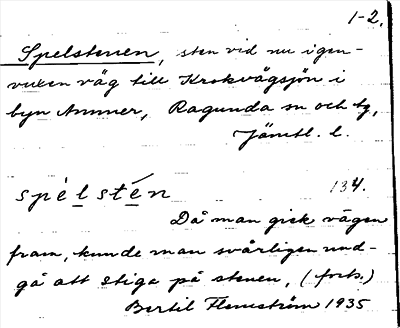 1-2.
Spelstenen, sten vid nu igen-
vuxen väg till Krokvägsjön i
byn Ammer, Ragunda sn och tg,
Jämtl. l.
spèlstén 134.
Då man gick vägen
fram, kunde man svårligen und-
gå att stiga på stenen, (forts.)
Bertil Flemström 1935